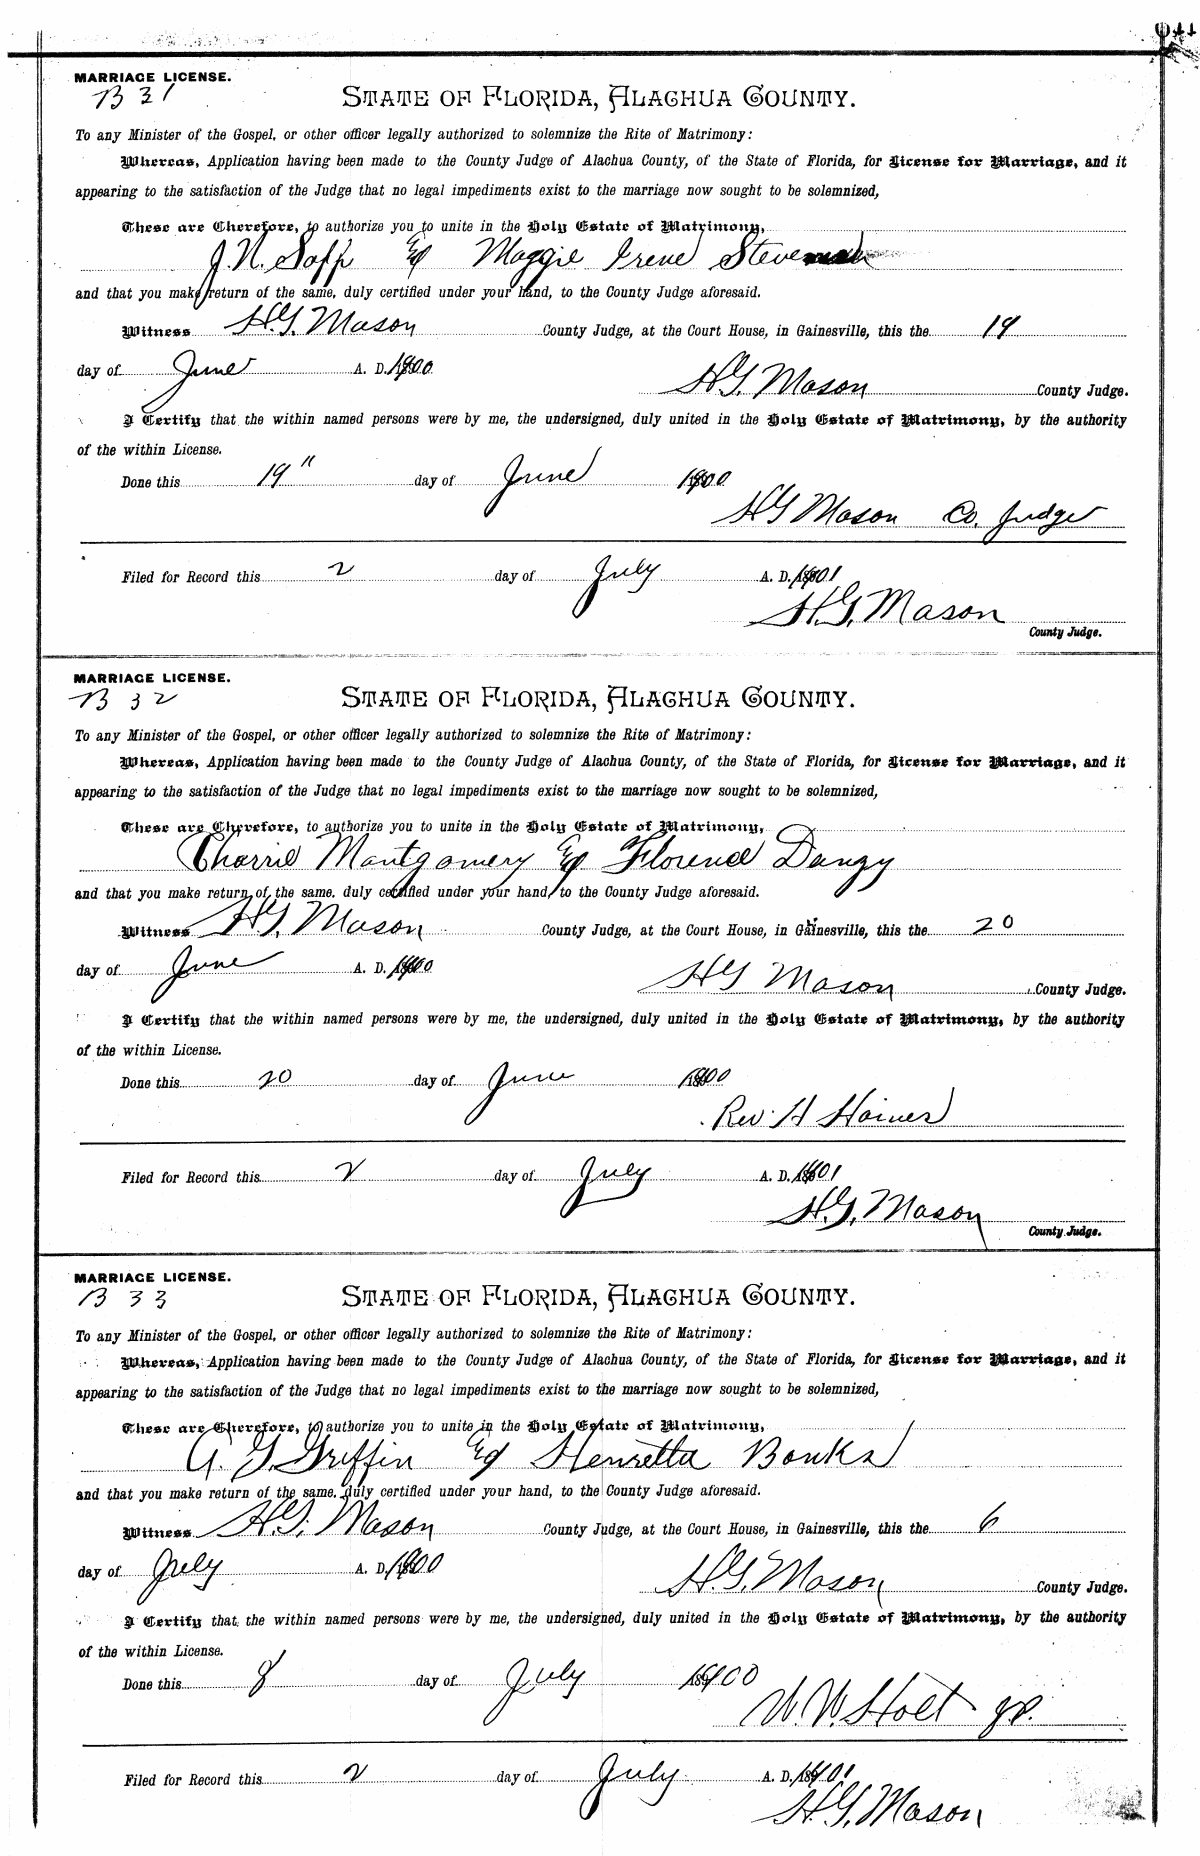 MARRIAGE LICENSE.
B 31
STATE OF FLORIDA, ALACHUA COUNTY.
To any Minister of the Gospel, or other officer legally authorized to solemnize the Rite of Matrimony:
Whereas, Application having been made to the County Judge of Alachua County, of the State of Florida, for License for Marriage, and it
appearing to the satisfaction of the Judge that no legal impediments exist to the marriage now sought to be solemnized,
These are Therefore, to authorize you to unite in the Holy Estate of Matrimony,
J. N. Sapp & Maggie Irene
and that you make return of the same, duly certified under your hand, to the County Judge aforesaid.
Witness H. G. Mason County Judge, at the Court House, in Gainesville, this the 19
day of June A. D. 1900
H G Mason County Judge.
I Certify that the within named persons were by me, the undersigned, duly united in the Holy Estate of Matrimony, by the authority
of the within License.
Done this 19" day of June 1900
H G Mason Co. Judge
Filed for Record this 2 day of July A. D. 1901
H. G. Mason
County Judge.
MARRIAGE LICENSE.
B 32
STATE OF FLORIDA, ALACHUA COUNTY.
To any Minister of the Gospel, or other officer legally authorized to solemnize the Rite of Matrimony:
Whereas, Application having been made to the County Judge of Alachua County, of the State of Florida, for License for Marriage, and it
appearing to the satisfaction of the Judge that no legal impediments exist to the marriage now sought to be solemnized,
These are Therefore, to authorize you to unite in the Holy Estate of Matrimony,
Charrie Montgomery & Florence Danzy
and that you make return of the same, duly certified under your hand, to the County Judge aforesaid.
Witness H G. Mason County Judge, at the Court House, in Gainesville, this the 20
day of June A. D. 1900
H G Mason County Judge.
I Certify that the within named persons were by me, the undersigned, duly united in the Holy Estate of Matrimony, by the authority
of the within License.
Done this 20 day of June 1900
Rev. H Haines
Filed for Record this 2 day of July A. D. 1901
H. G. Mason
County Judge.
MARRIAGE LICENSE.
B 33
STATE OF FLORIDA, ALACHUA COUNTY.
To any Minister of the Gospel, or other officer legally authorized to solemnize the Rite of Matrimony:
Whereas, Application having been made to the County Judge of Alachua County, of the State of Florida, for License for Marriage, and it
appearing to the satisfaction of the Judge that no legal impediments exist to the marriage now sought to be solemnized,
These are Therefore, to authorize you to unite in the Holy Estate of Matrimony,
A. G. Griffin & Henretta Banks
and that you make return of the same, duly certified under your hand, to the County Judge aforesaid.
Witness H. G. Mason County Judge, at the Court House, in Gainesville, this the 6
day of July A. D. 1900
H. G. Mason County Judge.
I Certify that the within named persons were by me, the undersigned, duly united in the Holy Estate of Matrimony, by the authority
of the within License.
Done this 8 day of July 1900
W. W. Holt JP.
Filed for Record this 2 day of July A. D. 1901
H. G. Mason